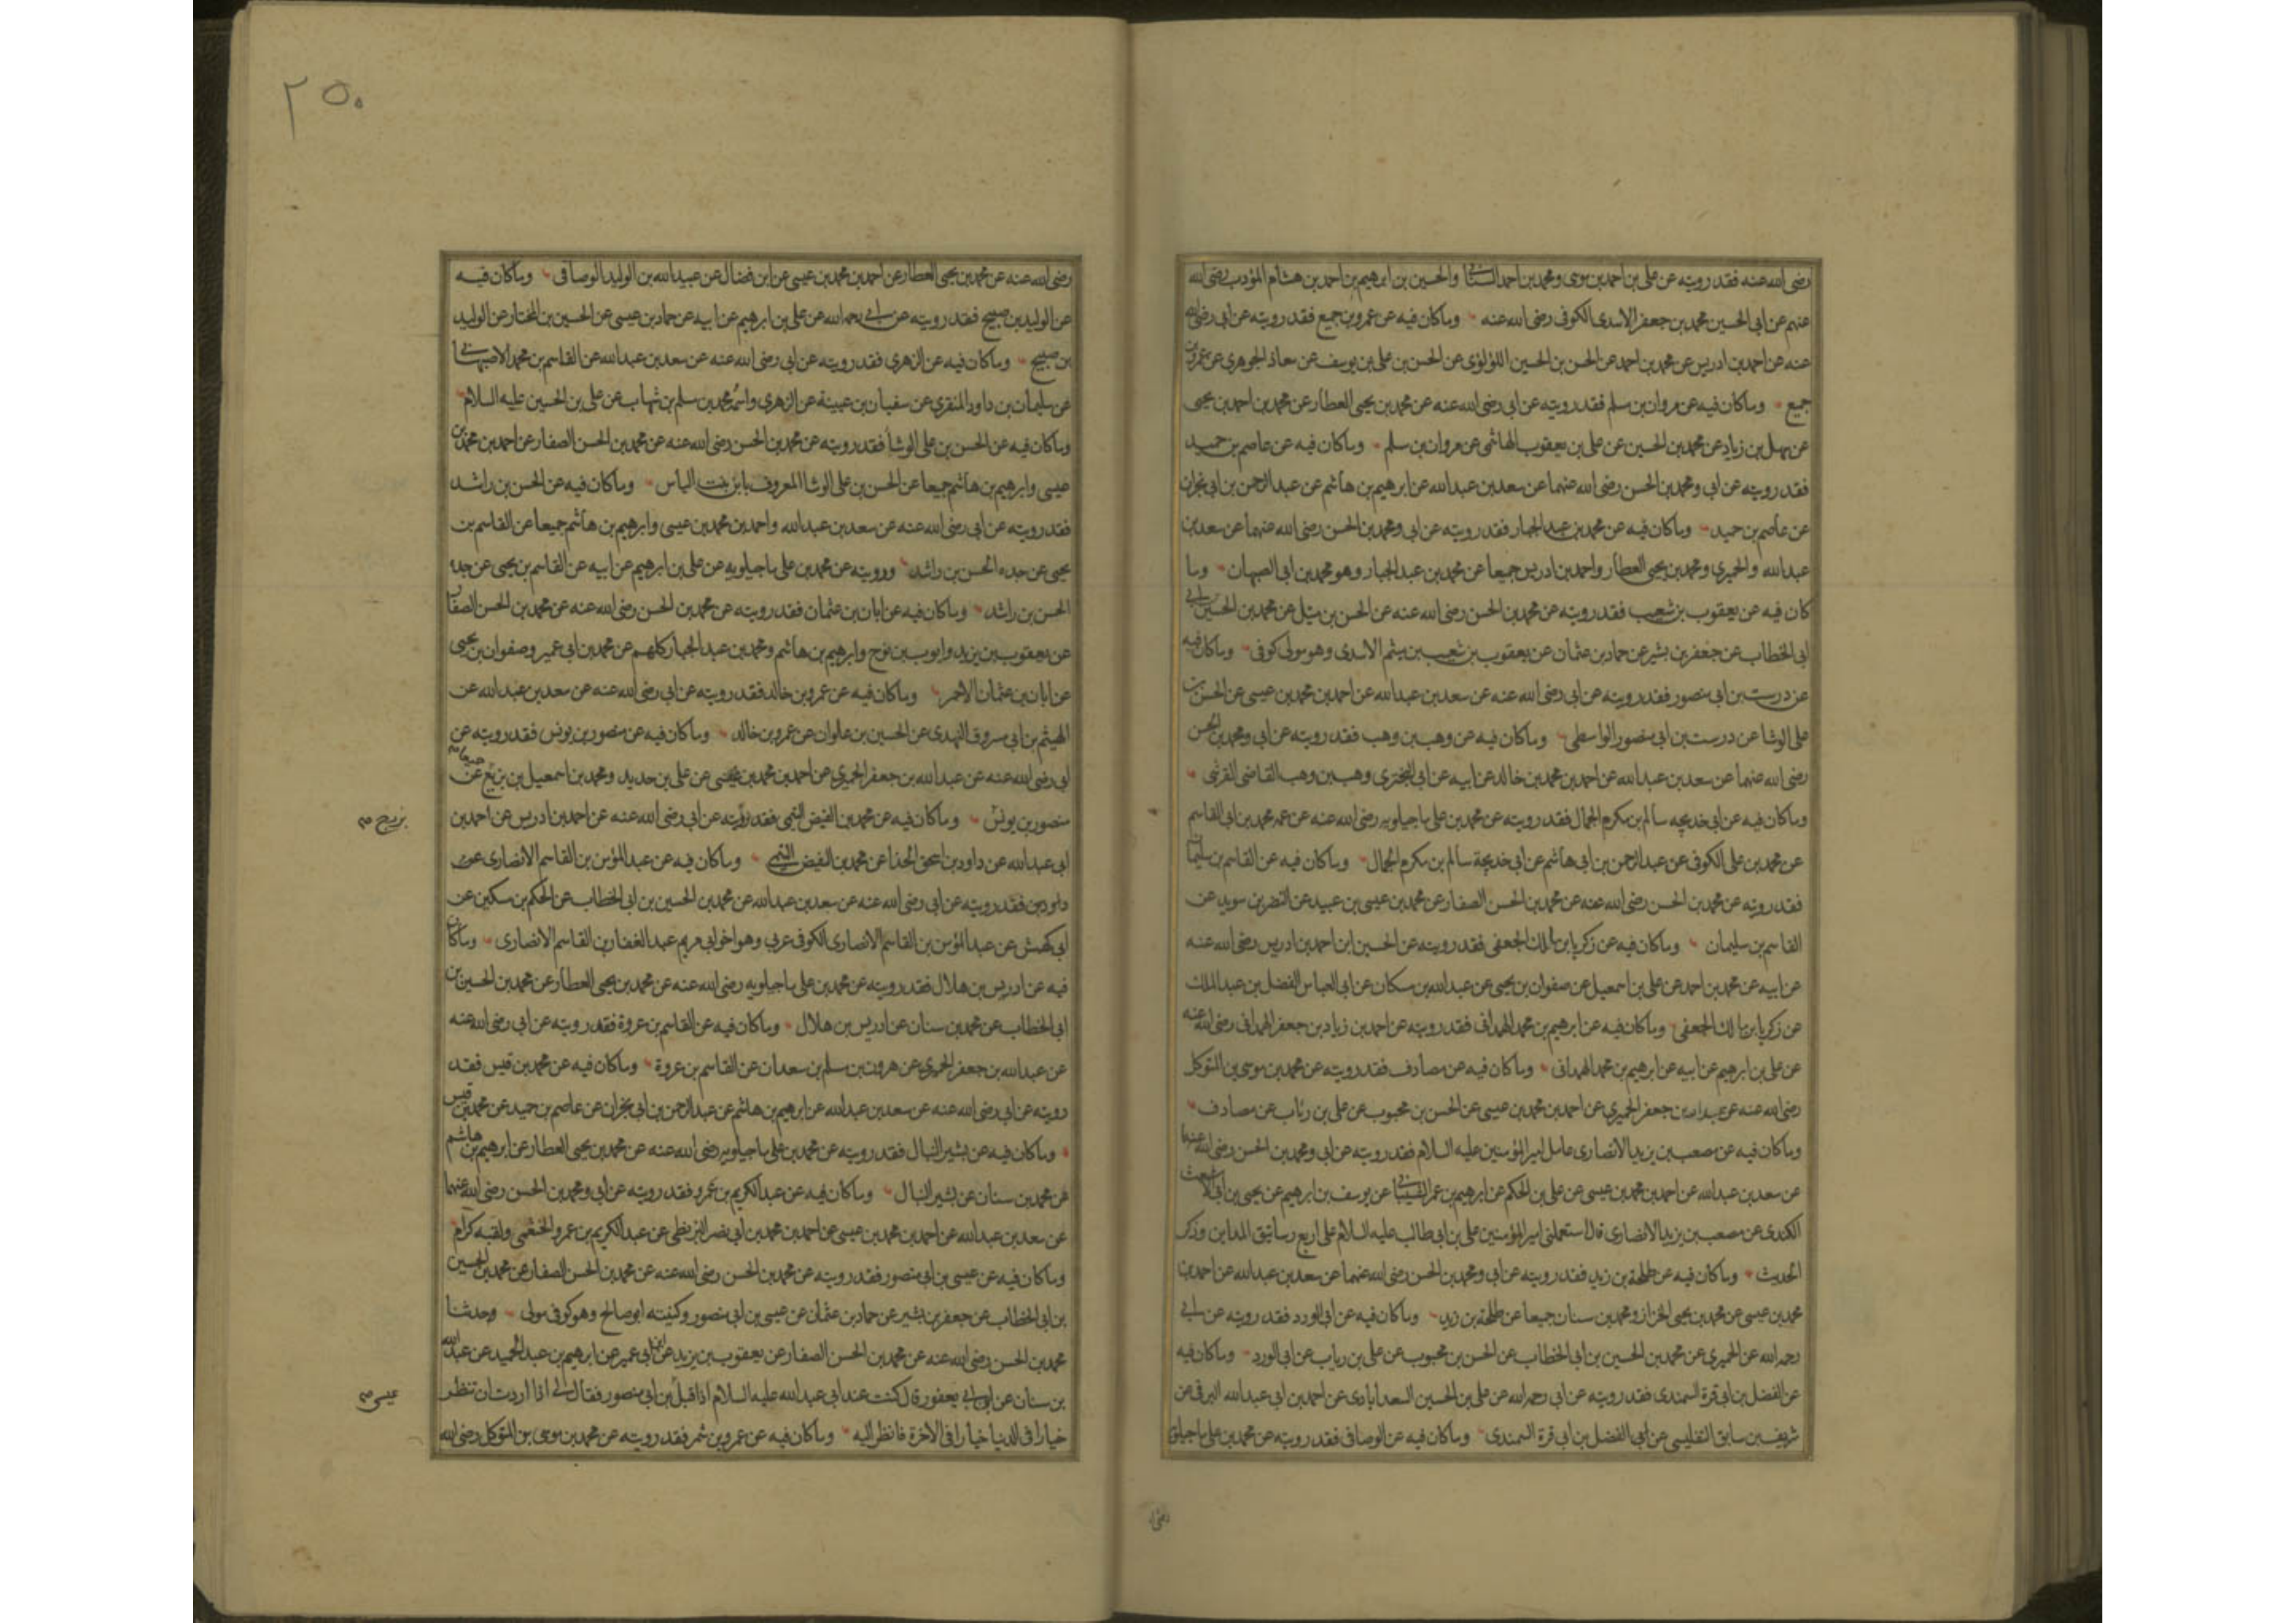 رضی الله عنه فقد رويته عن علی بن احمد بن موسی ومحمد بن احمد السنانی والحسين بن ابرهيم بن احمد بن هشام المؤدب رضی الله
عنهم عن ابی الحسين محمد بن جعفر الاسدی الكوفی رضی الله عنه وماكان فيه عن عمرو بن جميع فقد رويته عن ابی رضی الله
عنه عن احمد بن ادريس عن محمد بن احمد عن الحسن بن الحسين اللؤلؤی عن الحسن بن علی بن يوسف عن معاذ الجوهری عن عمرو بن
جميع وماكان فيه عن مروان بن مسلم فقد رويته عن ابی رضی الله عنه عن محمد بن يحيی العطار عن محمد بن احمد بن يحيی
عن سهل بن زياد عن محمد بن الحسين عن علی بن يعقوب الهاشمی عن مروان بن مسلم وماكان فيه عن عاصم بن حميد
فقد رويته عن ابی ومحمد بن الحسن رضی الله عنهما عن سعد بن عبدالله عن ابرهيم بن هاشم عن عبد الرحمن بن ابی نجران
عن عاصم بن حميد وماكان فيه عن محمد بن عبد الجبار فقد رويته عن ابی ومحمد بن الحسن رضی الله عنهما عن سعد بن
عبدالله والحميری ومحمد بن يحيی العطار واحمد بن ادريس جميعا عن محمد بن عبد الجبار وهو محمد بن ابی الصهبان وما
كان فيه عن يعقوب بن شعيب فقد رويته عن محمد بن الحسن رضی الله عنه عن الحسن بن متيل عن محمد بن الحسين بن
ابی الخطاب عن جعفر بن بشير عن حماد بن عثمان عن يعقوب بن شعيب بن ميثم الاسدی وهو مولی كوفی وماكان فيه
عن درست بن ابی منصور فقد رويته عن ابی رضی الله عنه عن سعد بن عبدالله عن احمد بن محمد بن عيسی عن الحسن بن
علی الوشا عن درست بن ابی منصور الواسطی وماكان فيه عن وهب بن وهب فقد رويته عن ابی ومحمد بن الحسن
رضی الله عنهما عن سعد بن عبدالله عن احمد بن محمد بن خالد عن ابيه عن ابی البختری وهب بن وهب القاضی القرشی
وماكان فيه عن ابی خديجه سالم بن مكرم الجمال فقد رويته عن محمد بن علی ماجيلويه رضی الله عنه عن عمه محمد بن ابی القاسم
عن محمد بن علی الكوفی عن عبد الرحمن بن ابی هاشم عن ابی خديجة سالم بن مكرم الجمال وماكان فيه عن القاسم بن سليمان
فقد رويته عن محمد بن الحسن رضی الله عنه عن محمد بن الحسن الصفار عن محمد بن عيسی بن عبيد عن النضر بن سويد عن
القاسم بن سليمان وماكان فيه عن زكريا بن مالك الجعفی فقد رويته عن الحسين بن احمد بن ادريس رضی الله عنه
عن ابيه عن محمد بن احمد عن علی بن اسمعيل عن صفوان بن يحيی عن عبدالله بن مسكان عن ابی العباس الفضل بن عبد الملك
عن زكريا بن مالك الجعفی وماكان فيه عن ابرهيم بن محمد الهمدانی فقد رويته عن احمد بن زياد بن جعفر الهمدانی رضی الله عنه
عن علی بن ابرهيم عن ابيه عن ابرهيم بن محمد الهمدانی وماكان فيه عن مصادف فقد رويته عن محمد بن موسی بن المتوكل
رضی الله عنه عن عبدالله بن جعفر الحميری عن احمد بن محمد بن عيسی عن الحسن بن محبوب عن علی بن رئاب عن مصادف
وماكان فيه عن مصعب بن يزيد الانصاری عامل امير المؤمنين عليه السلام فقد رويته عن ابی ومحمد بن الحسن رضی الله عنهما
عن سعد بن عبدالله عن احمد بن محمد بن عيسی عن علی بن الحكم عن ابرهيم بن عمر الشيبانی عن يوسف بن ابرهيم عن يحيی بن ابی الاشعث
الكندی عن مصعب بن يزيد الانصاری قال استعملنی امير المؤمنين علی بن ابی طالب عليه السلام علی اربع رساتيق المداين وذكر
الحديث وماكان فيه عن طلحة بن زيد فقد رويته عن ابی ومحمد بن الحسن رضی الله عنهما عن سعد بن عبدالله عن احمد بن
محمد بن عيسی عن محمد بن يحيی الخزاز ومحمد بن سنان جميعا عن طلحة بن زيد وماكان فيه عن ابی الورد فقد رويته عن ابی
رحمه الله عن الحميری عن محمد بن الحسين بن ابی الخطاب عن الحسن بن محبوب عن علی بن رياب عن ابی الورد وماكان فيه
عن الفضل بن ابی قرة السمندی فقد رويته عن ابی رحمه الله عن علی بن الحسين السعدابادی عن احمد بن ابی عبدالله البرقی عن
شريف بن سابق التفليسی عن ابی الفضل بن ابی قرة السمندی وماكان فيه عن الوصافی فقد رويته عن محمد بن علی ماجيلويه
رضی
۲۵۰
رضی الله عنه عن محمد بن يحيی العطار عن احمد بن محمد بن عيسی عن ابن فضال عن عبيدالله بن الوليد الوصافی وماكان فيه
عن الوليد بن صبيح فقد رويته عن ابی رحمه الله عن علی بن ابرهيم عن ابيه عن حماد بن عيسی عن الحسين بن المختار عن الوليد
بن صبيح وماكان فيه عن الزهری فقد رويته عن ابی رضی الله عنه عن سعد بن عبدالله عن القاسم بن محمد الاصبهانی
عن سليمان بن داود المنقری عن سفيان بن عيينة عن الزهری واسمه محمد بن مسلم بن شهاب عن علی بن الحسين عليه السلام
وماكان فيه عن الحسن بن علی الوشا فقد رويته عن محمد بن الحسن رضی الله عنه عن محمد بن الحسن الصفار عن احمد بن محمد بن
عيسی وابرهيم بن هاشم جميعا عن الحسن بن علی الوشا المعروف بابن بنت الياس وماكان فيه عن الحسن بن راشد
فقد رويته عن ابی رضی الله عنه عن سعد بن عبدالله واحمد بن محمد بن عيسی وابرهيم بن هاشم جميعا عن القاسم بن
يحيی عن جده الحسن بن راشد ورويته عن محمد بن علی ماجيلويه عن علی بن ابرهيم عن ابيه عن القاسم بن يحيی عن جده
الحسن بن راشد وماكان فيه عن ابان بن عثمان فقد رويته عن محمد بن الحسن رضی الله عنه عن محمد بن الحسن الصفار
عن يعقوب بن يزيد وايوب بن نوح وابرهيم بن هاشم ومحمد بن عبد الجبار كلهم عن محمد بن ابی عمير وصفوان بن يحيی
عن ابان بن عثمان الاحمر وماكان فيه عن عمرو بن خالد فقد رويته عن ابی رضی الله عنه عن سعد بن عبدالله عن
الهيثم بن ابی مسروق النهدی عن الحسين بن علوان عن عمرو بن خالد وماكان فيه عن منصور بن يونس فقد رويته عن
ابی رضی الله عنه عن عبدالله بن جعفر الحميری عن احمد بن محمد بن عيسی عن علی بن حديد ومحمد بن اسمعيل بن بزيع جميعا عن
منصور بن يونس وماكان فيه عن محمد بن الفيض التيمی فقد رويته عن ابی رضی الله عنه عن احمد بن ادريس عن احمد بن
ابی عبدالله عن داود بن اسحق الحذا عن محمد بن الفيض التيمی وماكان فيه عن عبد المؤمن بن القاسم الانصاری عن
فقد رويته عن ابی رضی الله عنه عن سعد بن عبدالله عن محمد بن الحسين بن ابی الخطاب عن الحكم بن مسكين عن
ابی كهمش عن عبد المؤمن بن القاسم الانصاری الكوفی عربی وهو اخو ابی مريم عبد الغفار بن القاسم الانصاری وماكان
فيه عن ادريس بن هلال فقد رويته عن محمد بن علی ماجيلويه رضی الله عنه عن محمد بن يحيی العطار عن محمد بن الحسين بن
ابی الخطاب عن محمد بن سنان عن ادريس بن هلال وماكان فيه عن القاسم بن عروة فقد رويته عن ابی رضی الله عنه
عن عبدالله بن جعفر الحميری عن هرون بن مسلم بن سعدان عن القاسم بن عروة وماكان فيه عن محمد بن قيس فقد
رويته عن ابی رضی الله عنه عن سعد بن عبدالله عن ابرهيم بن هاشم عن عبد الرحمن بن ابی نجران عن عاصم بن حميد عن محمد بن قيس
وماكان فيه عن بشير النبال فقد رويته عن محمد بن علی ماجيلويه رضی الله عنه عن محمد بن يحيی العطار عن ابرهيم بن هاشم
عن محمد بن سنان عن بشير النبال وماكان فيه عن عبد الكريم بن عمرو فقد رويته عن ابی ومحمد بن الحسن رضی الله عنهما
عن سعد بن عبدالله عن احمد بن محمد بن عيسی عن احمد بن محمد بن ابی نصر البزنطی عن عبد الكريم بن عمرو الخثعمی ولقبه كرام
وماكان فيه عن عيسی بن ابی منصور فقد رويته عن محمد بن الحسن رضی الله عنه عن محمد بن الحسن الصفار عن محمد بن الحسين
بن ابی الخطاب عن جعفر بن بشير عن حماد بن عثمان عن عيسی بن ابی منصور وكنيته ابو صالح وهو كوفی مولی وحدثنا
محمد بن الحسن رضی الله عنه عن محمد بن الحسن الصفار عن يعقوب بن يزيد عن ابن ابی عمير عن ابرهيم بن عبد الحميد عن عبدالله
بن سنان عن ابن ابی يعفور قال كنت عند ابی عبدالله عليه السلام اذ اقبل بن ابی منصور فقال لی اذا اردت ان تنظر
خيارا فی الدنيا خيارا فی الاخرة فانظر اليه وماكان فيه عن عمرو بن شمر فقد رويته عن محمد بن موسی بن المتوكل رضی الله
عيسی